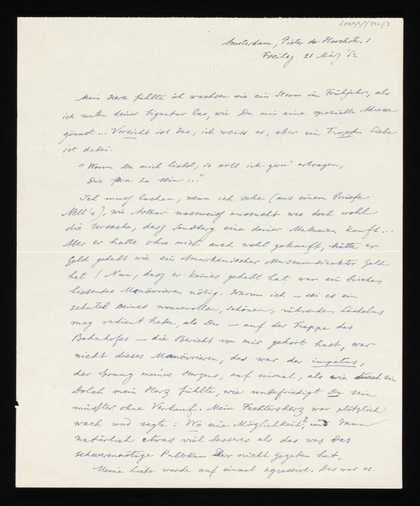 Amsterdam, Pieter de Hoochstr. 1
Freitag 21 März 52
Mein Herz fühlte ich wachsen wie ein Strom im Frühjahr, als
ich unter deiner Signatur las, wie Du mir eine spezielle Adresse
... Vorsicht ist das, ich weiss es, aber ein Tropfen Liebe
ist dabei.
"Wenn Du mich liebst, so will ich gern ertragen,
Dir fern zu sein ..."
Ich muss lachen, wenn ich sehe (aus einem Briefe
wie Arthur aussieht wie doch wohl
die Ursache, dass Sandberg eine deiner Malereien kauft...
Aber er hatte ohne mich auch wohl gekauft, hätte er
Geld gehabt wie ein Amerikanischer Museumdirektor Geld
hat! Nun, dass er keines gehabt hat war ein bischen
Manövrieren nötig. Warum ich - sei es ein
zehntel deines wundervollen, schönen, rührenden Lächelns
mag verdient haben, als Du - auf der Treppe des
Bahnhofes - die Bericht von mir gehört hast, war
nicht dieses Manövrieren, das war der impetus,
der Sprung meines Herzens, auf einmal, als wie durch ein
Dolch mein Herz fühlte, wie unbefriedigt Du sein
müsstest ohne Verkauf. Mein Fechtersherz war plötzlich
wach und sagte: Wo eine Möglichkeit? und dann
natürlich etwas viel besseres als das was das
schwermütige Publikum Dir nicht gegeben hat.
Meine Liebe wurde auf einmal agressiv. Das war es.